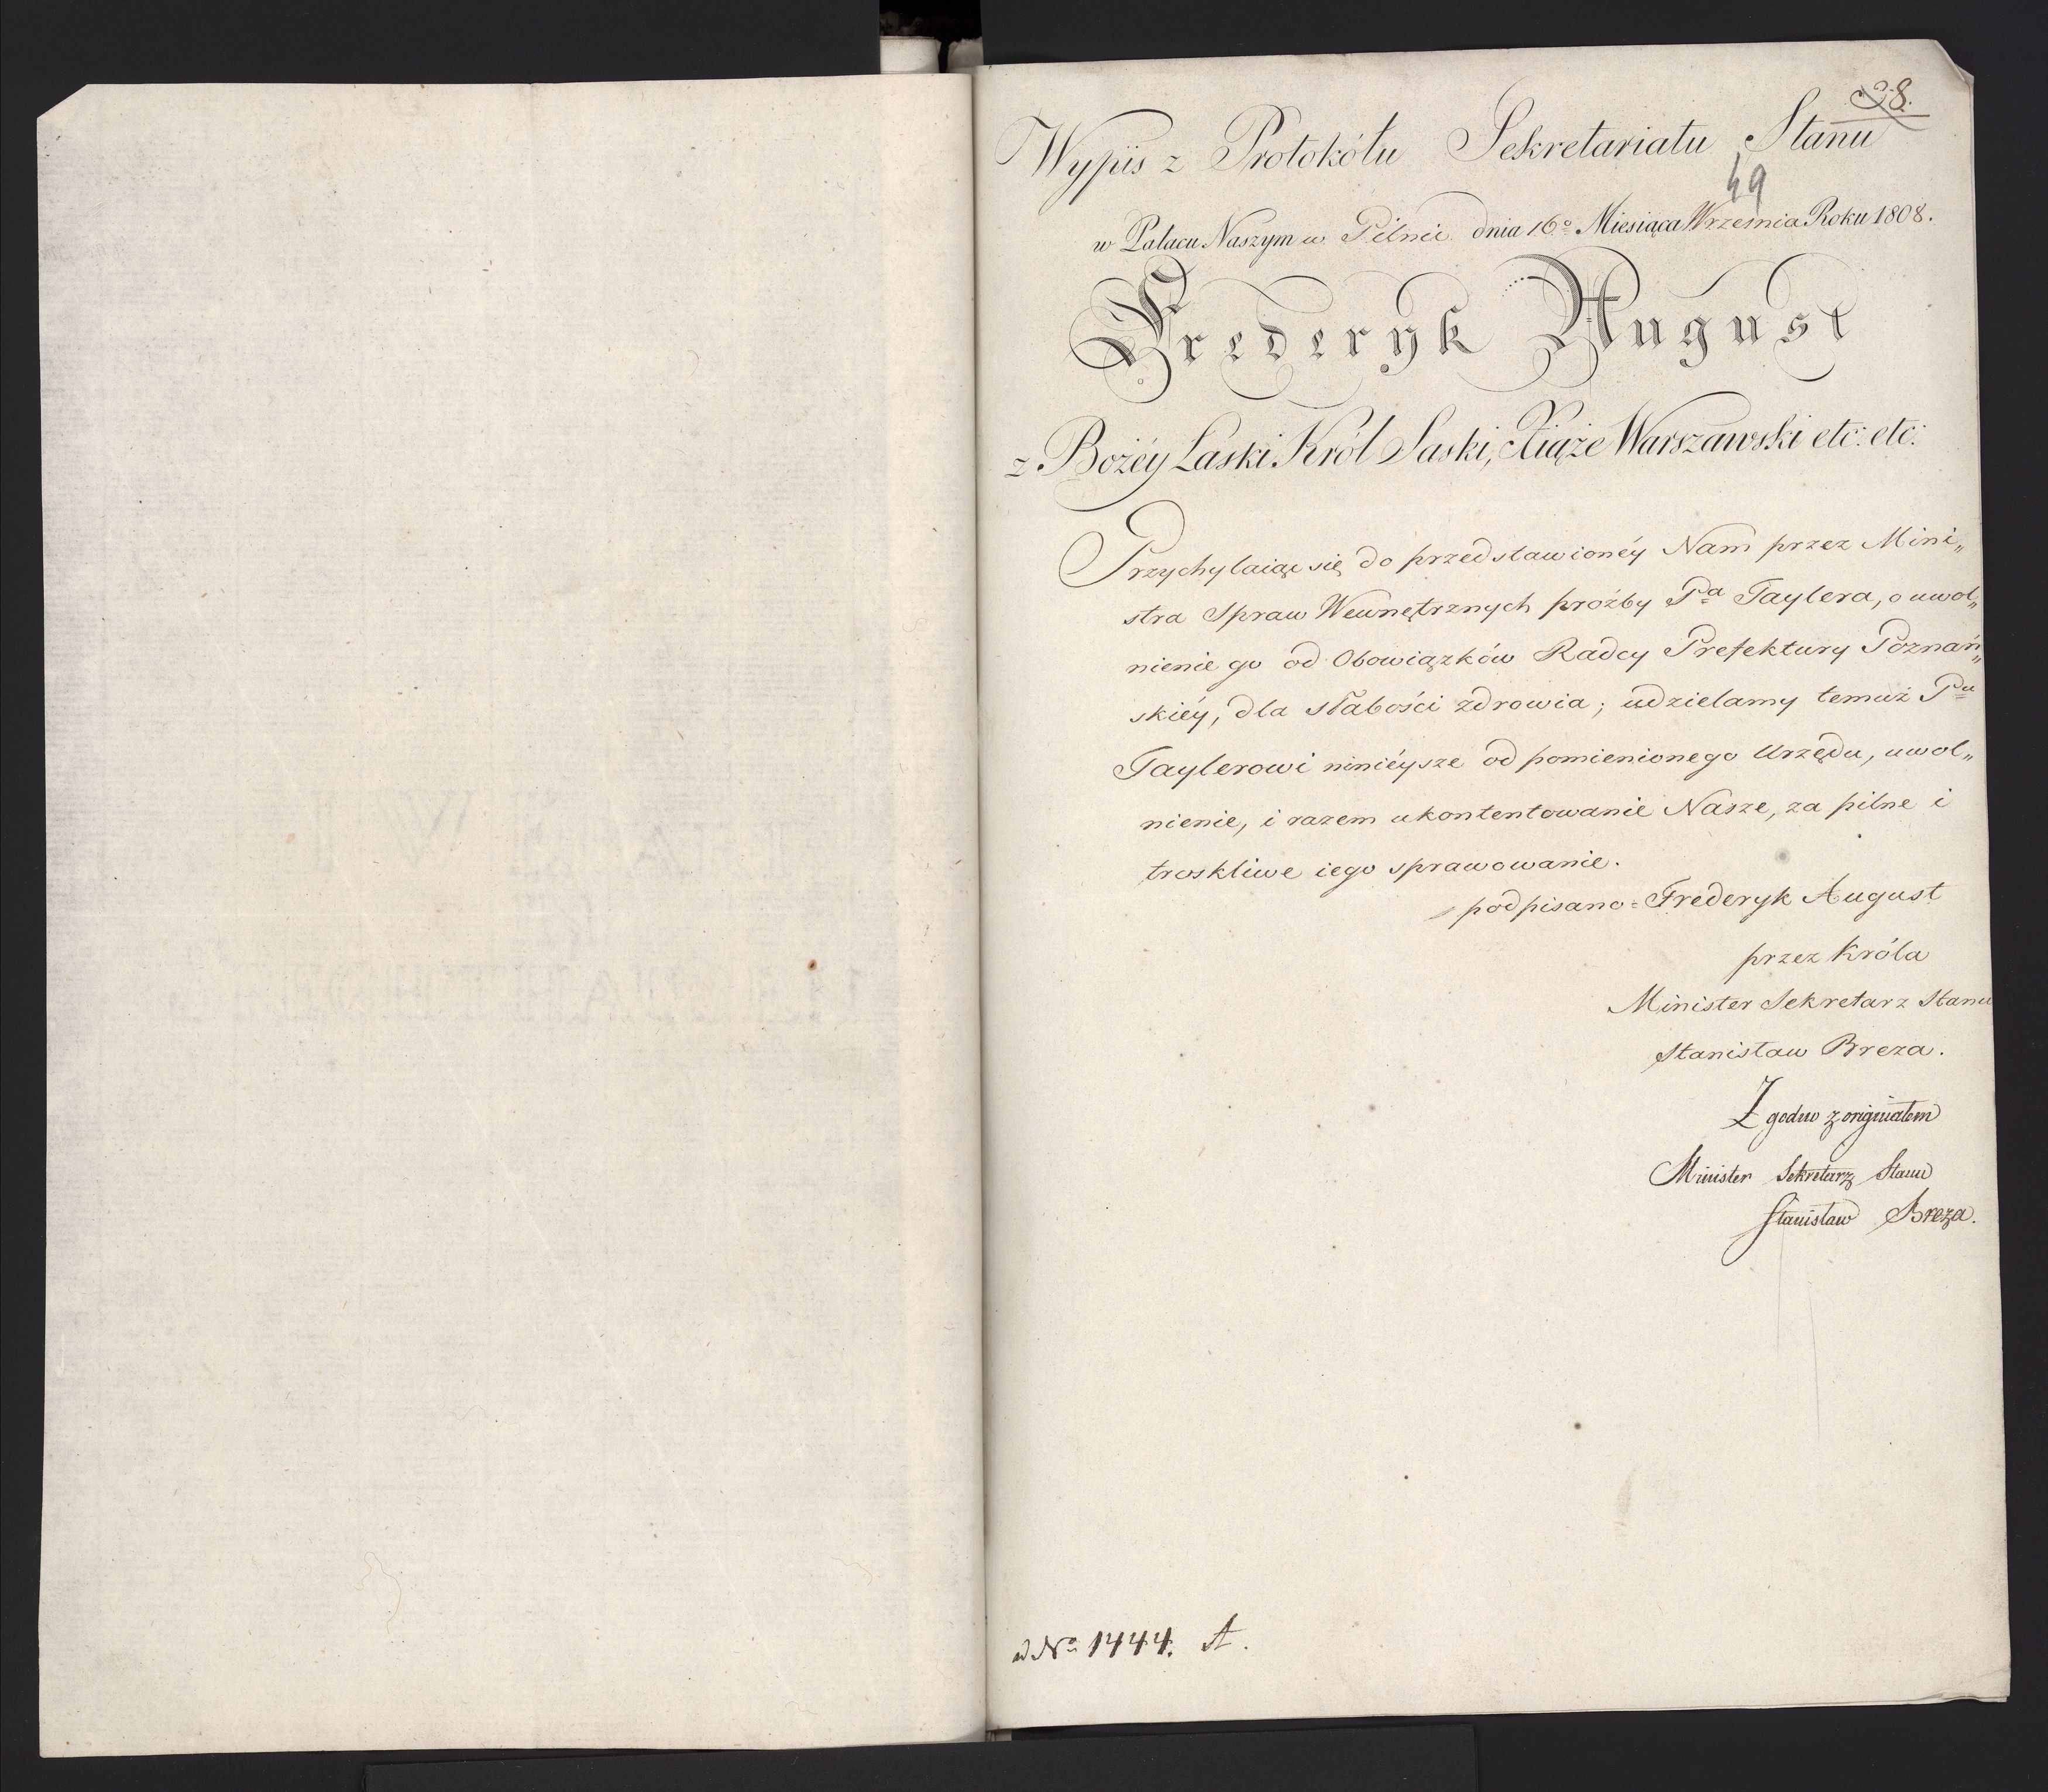 28.
Wypis z Protokółu Sekretariatu Stanu
49
w Pałacu Naszym w Pilnic dnia 16º Miesiąca Września Roku 1808.
Frederyk August
z Bożéy Łaski Król Saski, Xiąże Warszawski etc: etc:
Przychylaiąc się do przedstawionéy Nam przez Mini„
stra Spraw Wewnętrznych proźby Pa Taylera, o uwol„
nienie go od Obowiązków Radcy Prefektury Poznań„
skiéy, dla słabości zdrowia; udzielamy temuż Pu
Taylerowi niniéysze od pomienionego Urzędu, uwol„
nienie, i razem ukontentowanie Nasze, za pilne i
troskliwe iego sprawowanie.
podpisano = Frederyk August
przez Króla
Minister Sekretarz Stanu
Stanisław Breza.
Zgodno z originałem
Minister Sekretarz Stanu
Stanisław Breza.
Nº 1444. A.